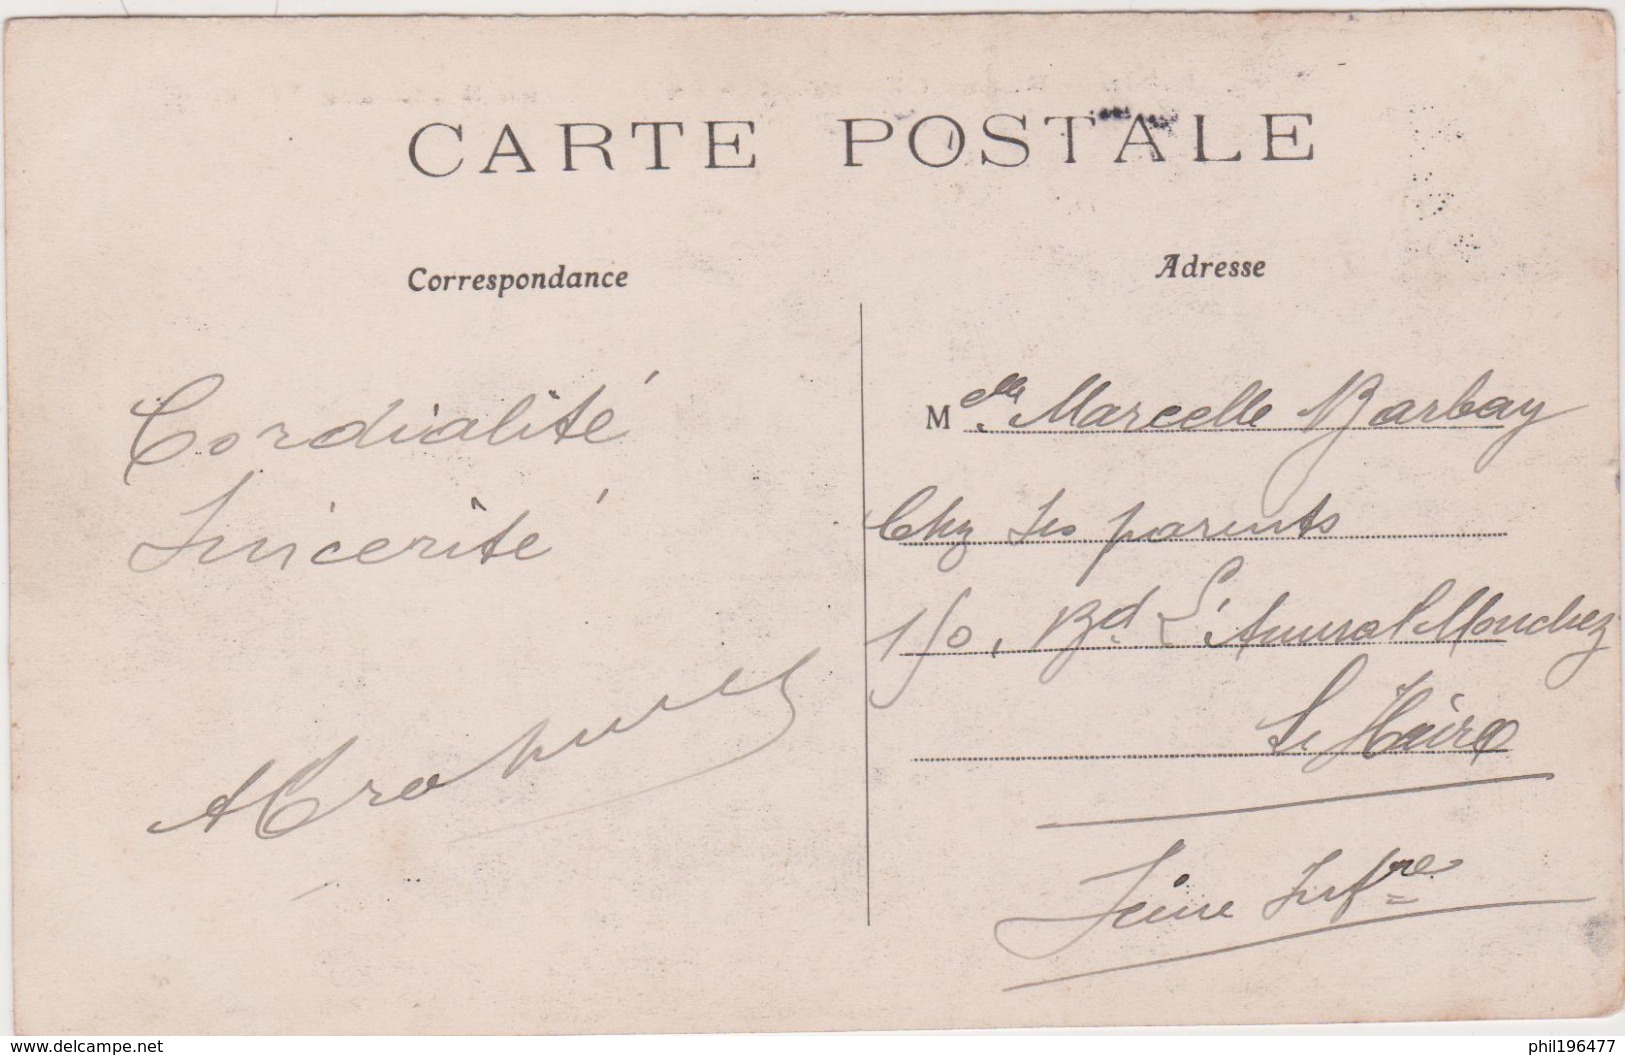 CARTE POSTALE
Correspondance
Cordialité
Sincérité
Adresse
Melle Marcelle Barbay
Chez ses parents
150, Bd L'Amiral Mouchez
Le Havre
Seine Infre
www.delcampe.net
phil196477